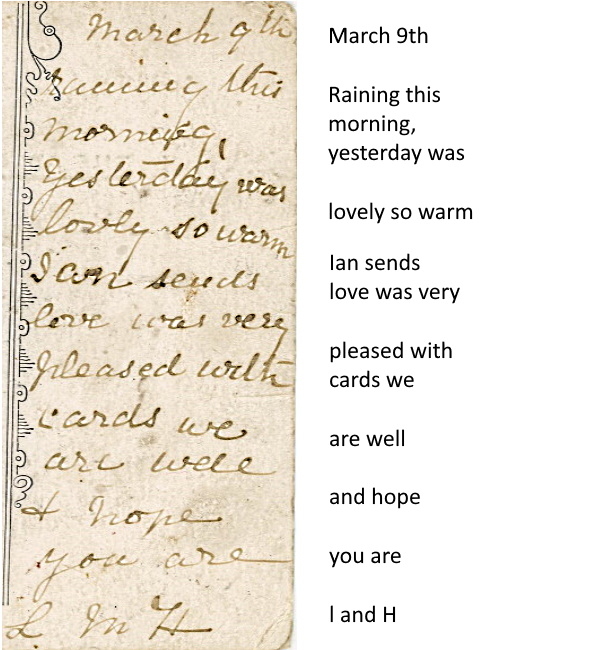 March 9th
raining this
morning,
Yesterday was
lovly so warm
Ian sends
love was very
pleased with
cards we
are well
& hope
you are
L M H
March 9th
Raining this
morning,
yesterday was
lovely so warm
Ian sends
love was very
pleased with
cards we
are well
and hope
you are
l and H